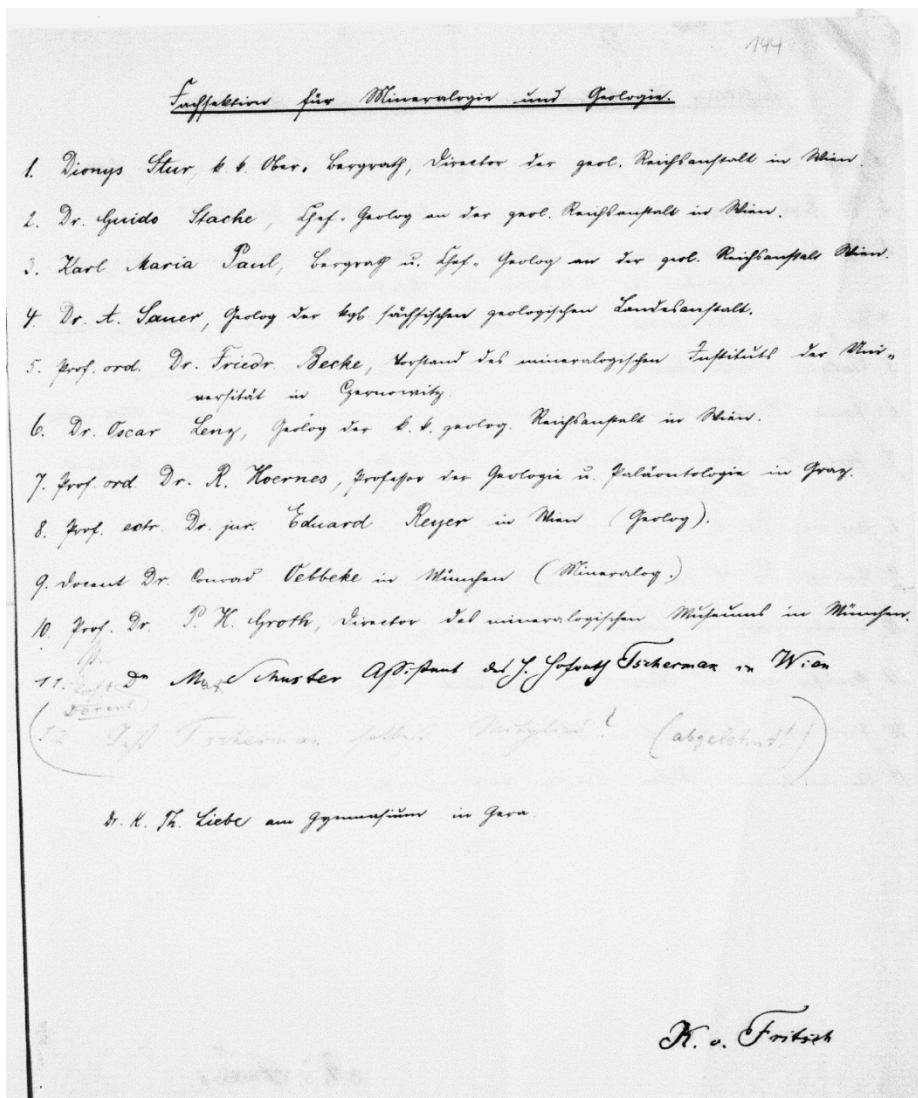 144
Fachsektion für Mineralogie und Geologie.
1. Dionys Stur, k. k. Ober-Bergrath, Director der geol. Reichsanstalt in Wien.
2. Dr. Guido Stache, Chef-Geolog an der geol. Reichsanstalt in Wien.
3. Karl Maria Paul, Bergrath u. Chef-Geolog an der geol. Reichsanstalt Wien.
4. Dr. A. Sauer, Geolog der kgl. sächsischen geologischen Landesanstalt.
5. Prof. ord. Dr. Friedr. Becke, Vorstand des mineralogischen Instituts der Uni-
versität in Czernowitz.
6. Dr. Oscar Lenz, Geolog der k. k. geolog. Reichsanstalt in Wien.
7. Prof. ord Dr. R. Hoernes, Professor der Geologie u. Paläontologie in Graz.
8. Prof. extr. Dr. jur. Eduard Reyer in Wien (Geolog).
9. Docent Dr. Conrad Oebbeke in München (Mineralog.)
10. Prof. Dr. P. H. Groth, Director des mineralogischen Museums in München.
11. Dr Max Schuster Assistent des H. Hofrath Tschermak in Wien
Docent
12 Ist Tschermak selbst Mitglied? (abgelehnt!)
Dr. K. Th. Liebe am Gymnasium in Gera.
K. v. Fritsch